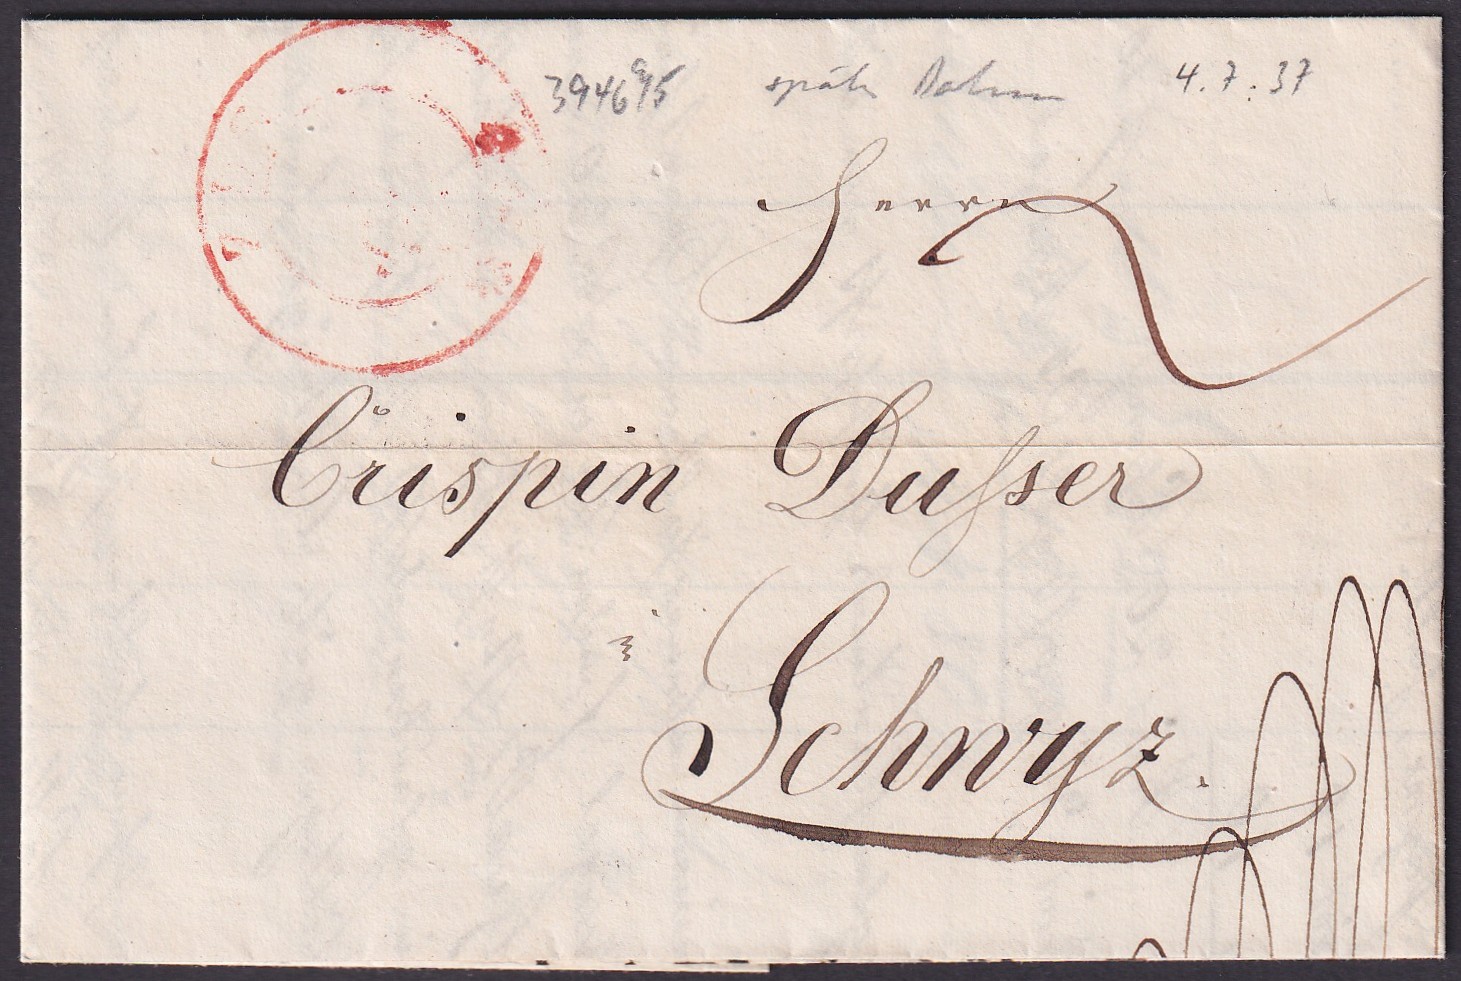 394695 späte Datum 4.7.37
Herrn
Crispin Dusser
Schwyz.